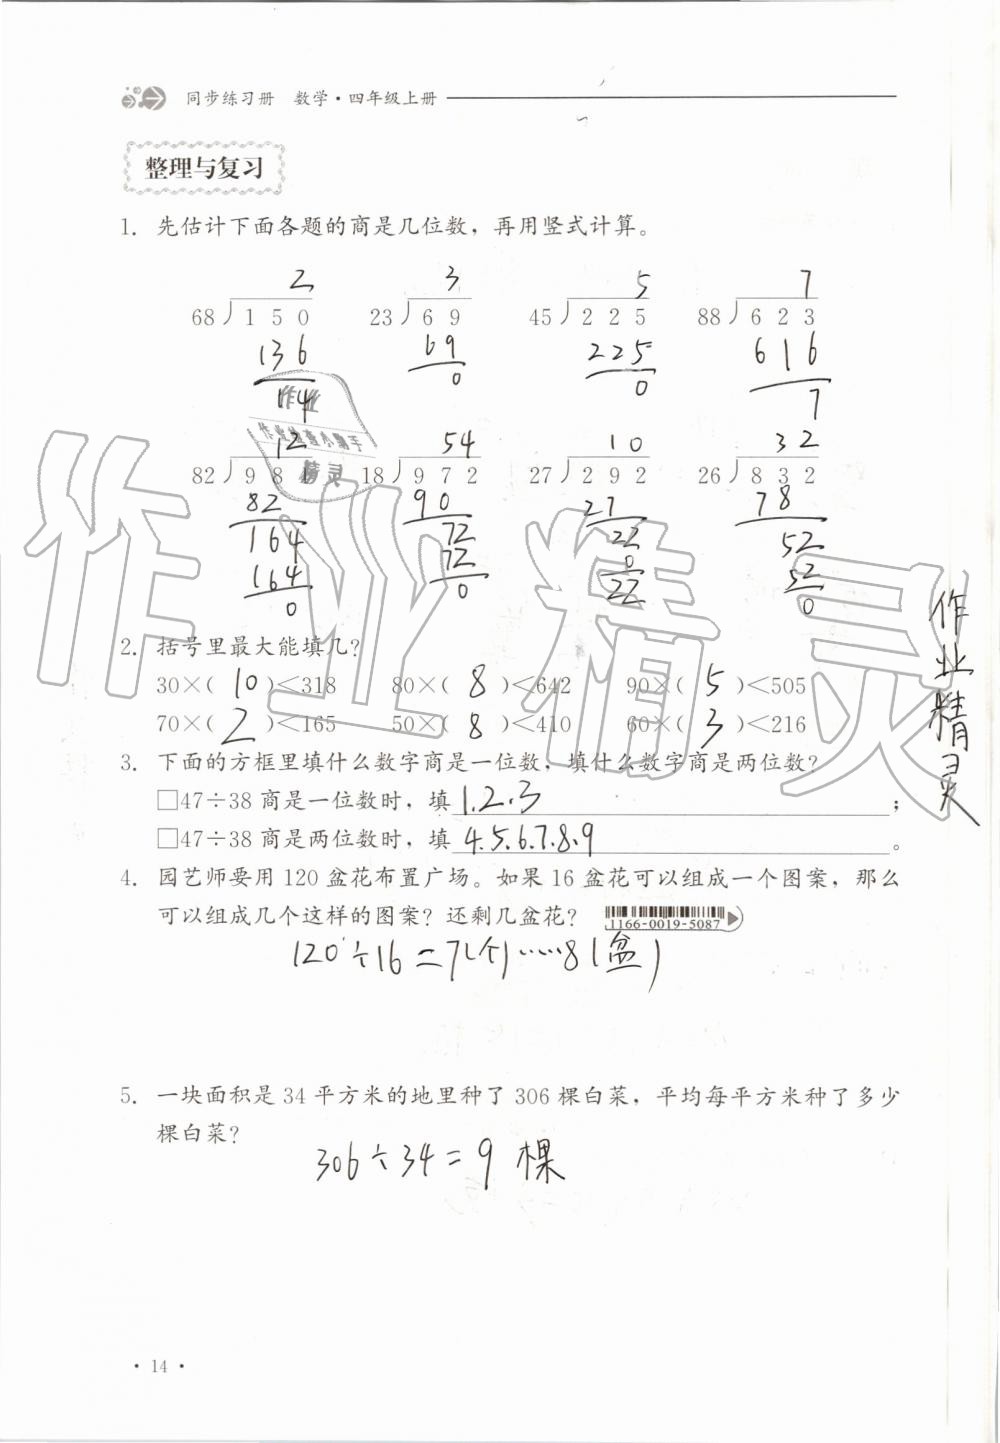 同步练习册 数学·四年级上册
整理与复习
1. 先估计下面各题的商是几位数，再用竖式计算。
2 3 5 7
68)150 23)69 45)225 88)623
136 69 225 616
14 0 0 7
12 54 10 32
82)98 18)972 27)292 26)832
82 90 27 78
164 72 22 52
164 72 0 52
0 0 22 0
2. 括号里最大能填几？
30×( 10 )<318 80×( 8 )<642 90×( 5 )<505
70×( 2 )<165 50×( 8 )<410 60×( 3 )<216
3. 下面的方框里填什么数字商是一位数，填什么数字商是两位数？
□47÷38 商是一位数时，填 1.2.3 ；
□47÷38 商是两位数时，填 4.5.6.7.8.9 。
4. 园艺师要用 120 盆花布置广场。如果 16 盆花可以组成一个图案，那么
可以组成几个这样的图案？还剩几盆花？ 1166-0019-5087
120÷16=7(个)……8(盆)
5. 一块面积是 34 平方米的地里种了 306 棵白菜，平均每平方米种了多少
棵白菜？
306÷34=9 棵
·14·
作业精灵
作业精灵
作业
精灵